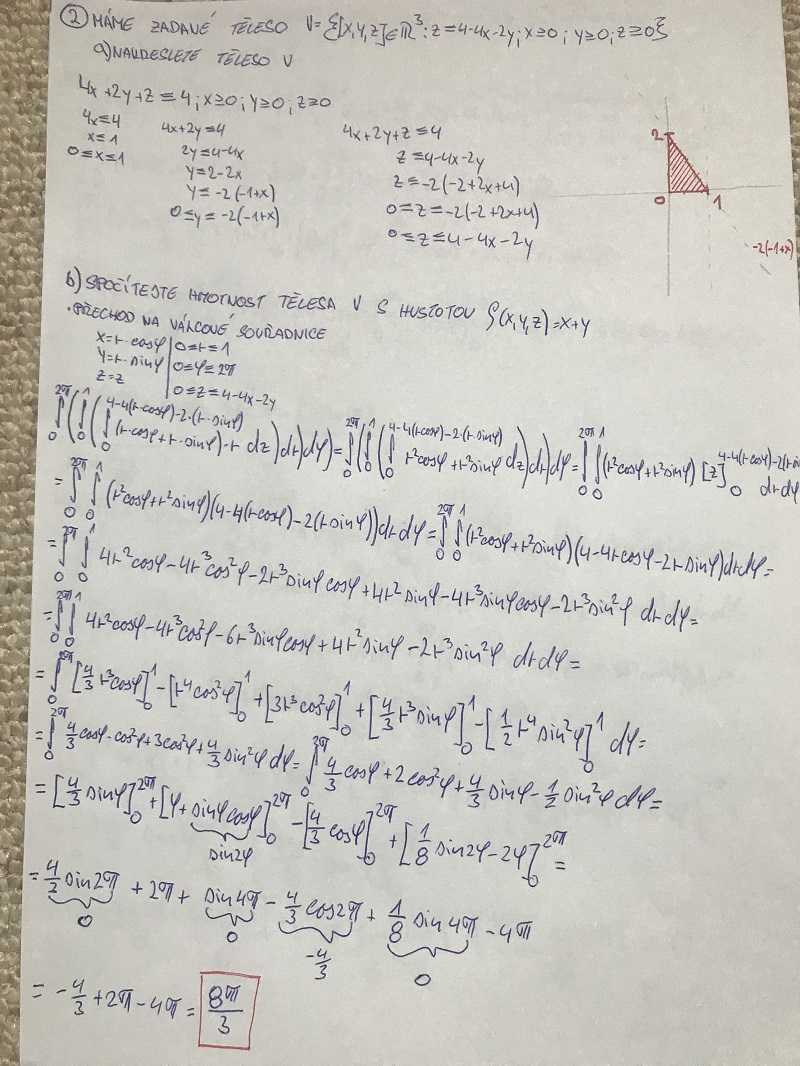 ② MÁME ZADANÉ TĚLESO V={[X,Y,Z]∈ℝ³: z≤4-4x-2y; x≥0; y≥0; z≥0}
a) NAKRESLETE TĚLESO V
4x+2y+z≤4; x≥0; y≥0; z≥0
4x≤4
x≤1
0≤x≤1
4x+2y≤4
2y≤4-4x
y≤2-2x
y≤-2(-1+x)
0≤y≤-2(-1+x)
4x+2y+z≤4
z≤4-4x-2y
z≤-2(-2+2x+y)
0≤z≤-2(-2+2x+y)
0≤z≤4-4x-2y
2
0
1
-2(-1+x)
b) SPOČÍTEJTE HMOTNOST TĚLESA V S HUSTOTOU ρ(x,y,z)=x+y
·PŘECHOD NA VÁLCOVÉ SOUŘADNICE
x=r·cosφ | 0≤r≤1
y=r·sinφ | 0≤φ≤2π
z=z | 0≤z≤4-4x-2y
∫₀^2π(∫₀^1(∫₀^4-4(r·cosφ)-2·(r·sinφ) (r·cosφ+r·sinφ)·r dz)dr)dφ)=∫₀^2π(∫₀^1(∫₀^4-4(r·cosφ)-2·(r·sinφ) r²cosφ+r²sinφ dz)dr)dφ=∫₀^2π∫₀^1(r²cosφ+r²sinφ)[z]₀^4-4(r·cosφ)-2(r·sin dr dφ
=∫₀^2π∫₀^1(r²cosφ+r²sinφ)(4-4(r cosφ)-2(r sinφ))dr dφ=∫₀^2π∫₀^1(r²cosφ+r²sinφ)(4-4r cosφ-2r sinφ)dr dφ=
=∫₀^2π∫₀^1 4r²cosφ-4r³cos²φ-2r³sinφ cosφ+4r²sinφ-4r³sinφcosφ-2r³sin²φ dr dφ=
=∫₀^2π∫₀^1 4r²cosφ-4r³cos²φ-6r³sinφcosφ+4r²sinφ-2r³sin²φ dr dφ=
=∫₀^2π[4/3 r³cosφ]₀^1-[r⁴cos²φ]₀^1+[3r³cos²φ]₀^1+[4/3 r³sinφ]₀^1-[1/2 r⁴sin²φ]₀^1 dφ=
=∫₀^2π 4/3 cosφ-cos²φ+3cos²φ+4/3 sin²φ dφ=∫₀^2π 4/3 cosφ+2cos²φ+4/3 sinφ-1/2 sin²φ dφ=
=[4/3 sinφ]₀^2π+[φ+sinφcosφ]₀^2π-[4/3 cosφ]₀^2π+[1/8 sin2φ-2φ]₀^2π=
sin2φ
=4/3 sin2π+2π+sin4π-4/3 cos2π+1/8 sin4π-4π
0 0 -4/3 0
=-4/3+2π-4π=8π/3